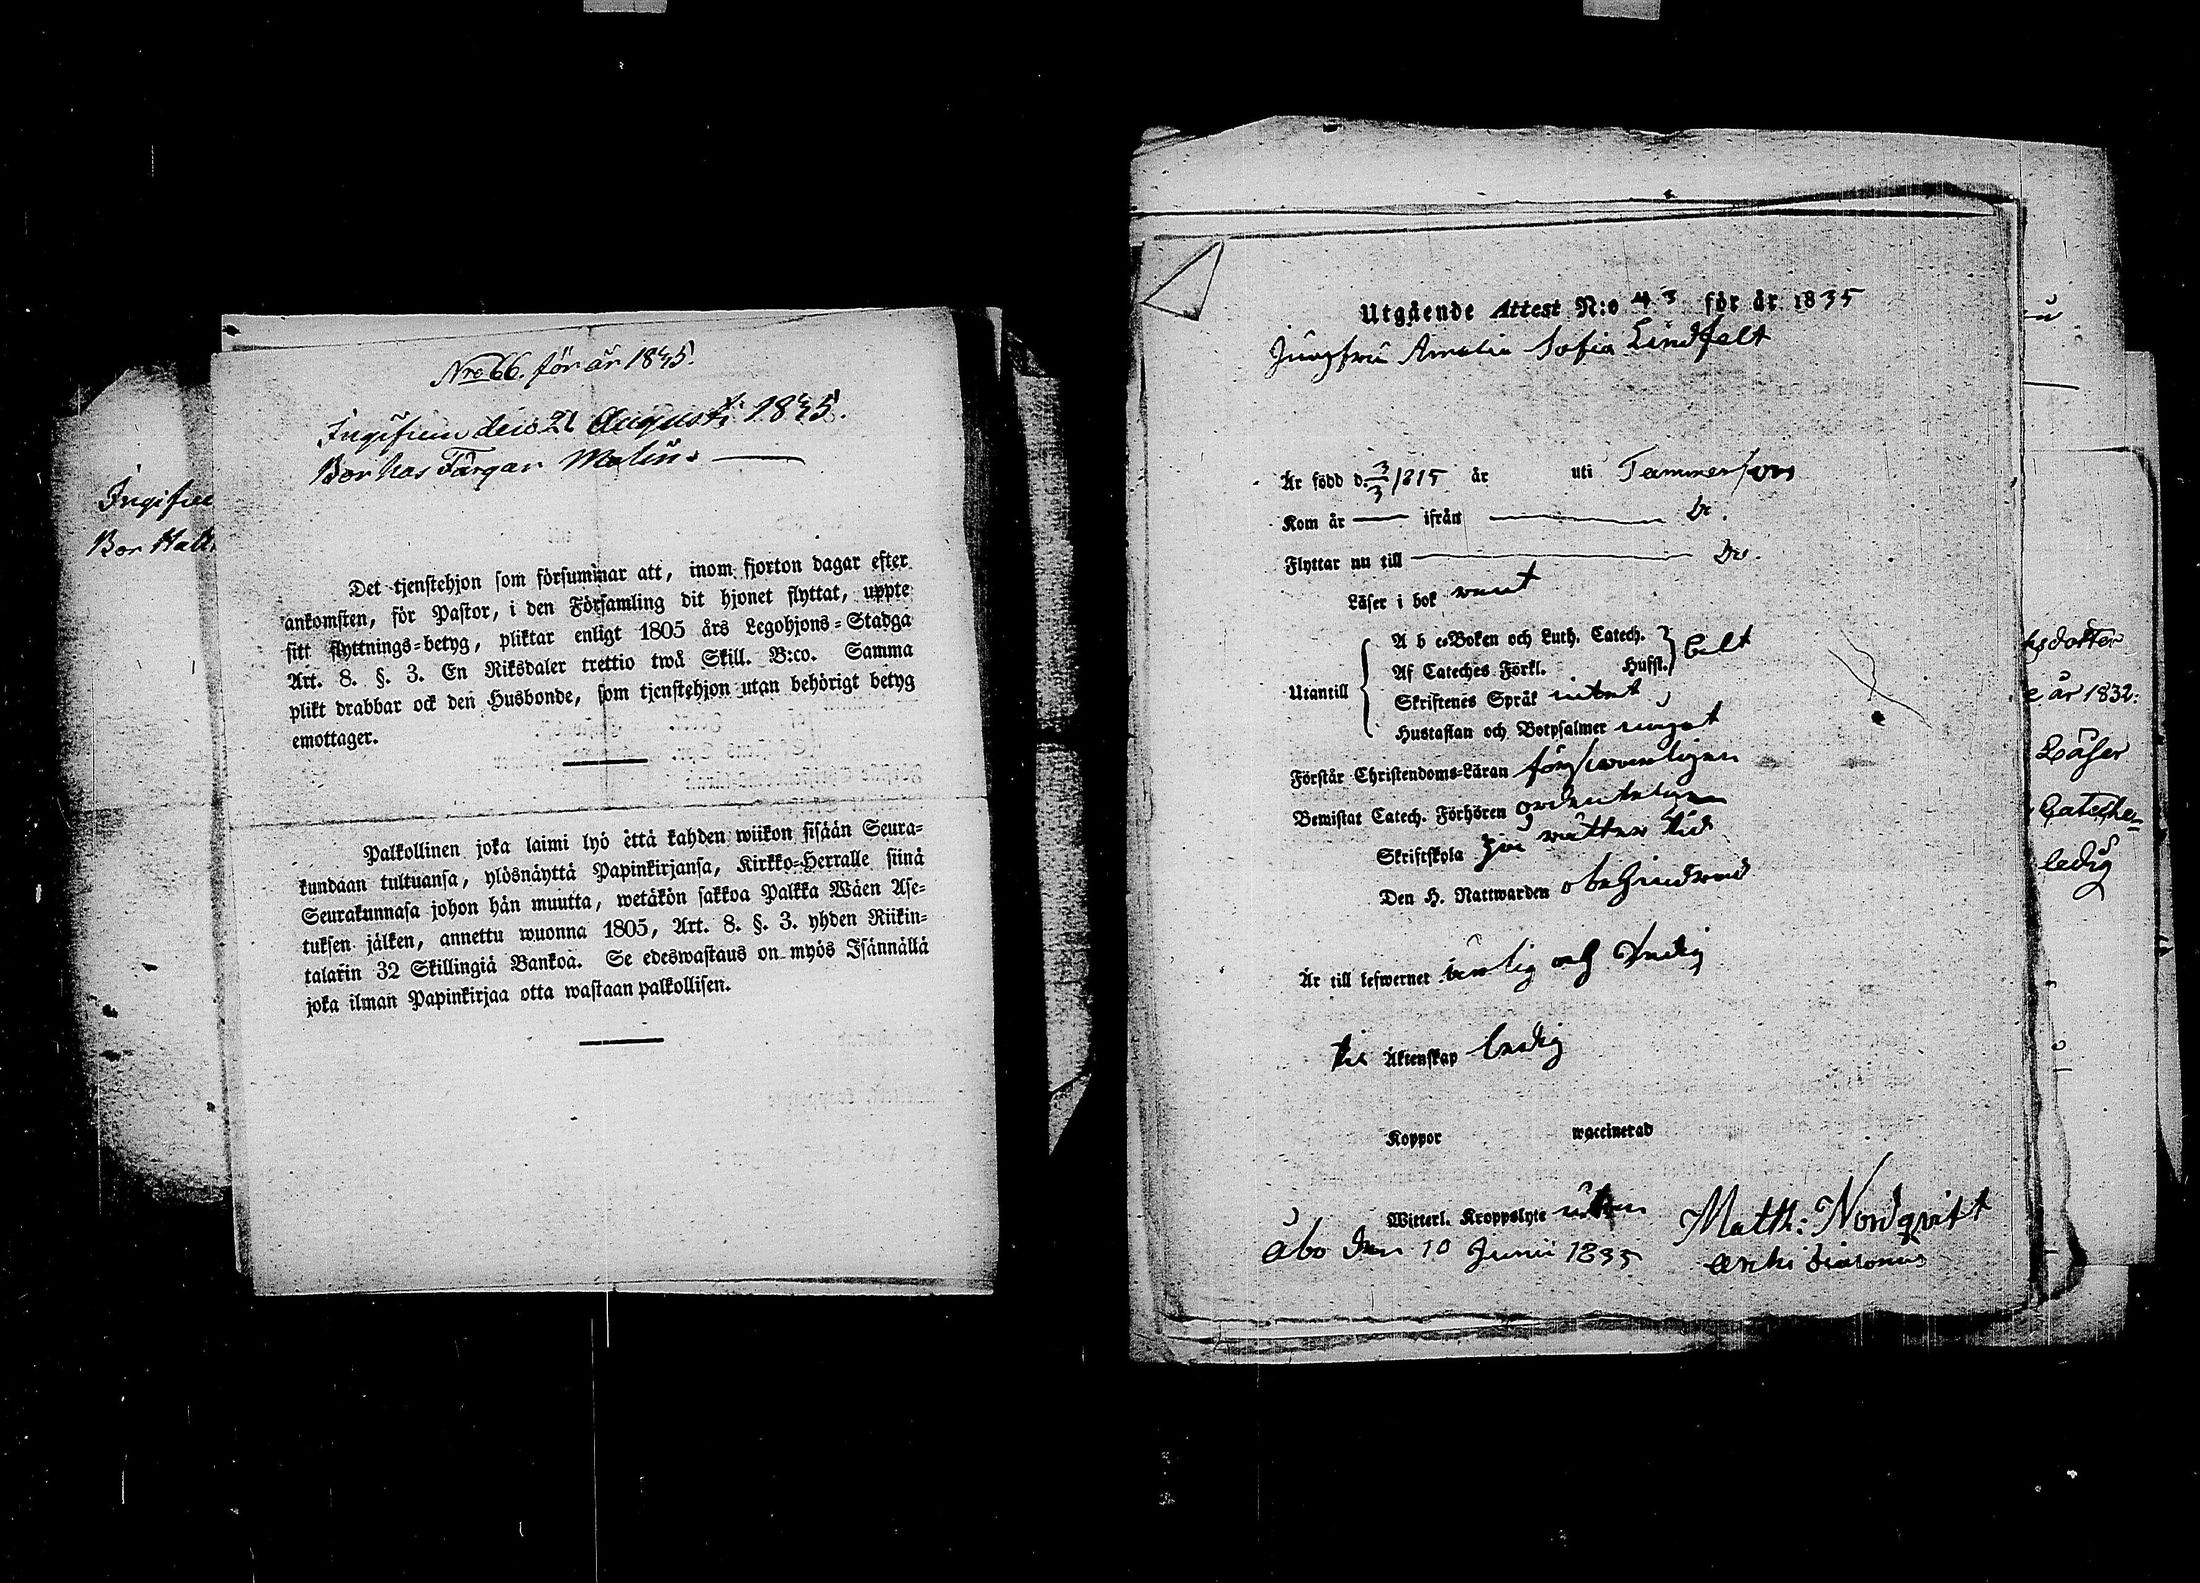 Nro 66. för år 1835.
Ingifven den 21 Augusti 1835.
Bor hos Färgar Molin.
Ingifve
Bor Hall
Det tjenstehjon som försummar att, inom fjorton dagar efter
ankomsten, för Pastor, i den Församling dit hjonet flyttat, uppte
sitt flyttnings-betyg, pliktar enligt 1805 års Legohjons-Stadga
Art. 8. §. 3. En Riksdaler trettio twå Skill. B:co. Samma
plikt drabbar ock den Husbonde, som tjenstehjon utan behörigt betyg
emottager.
Palkollinen joka laimi lyö että kahden wiikon sisään Seura-
kundaan tultuansa, ylösnäyttä Papinkirjansa, Kirkko-Herralle siinä
Seurakunnasa johon hän muutta, wetäkön sakkoa Palkka Wäen Ase-
tuksen jälken, annettu wuonna 1805, Art. 8. §. 3. yhden Riikin-
talarin 32 Skillingiä Bankoa. Se edeswastaus on myös Isännällä
joka ilman Papinkirjaa otta wastaan palkollisen.
Utgående Attest N:o 43 för år 1835
Jungfru Amalia Sofia Lindfelt
Är född d. 3/3 1815 år uti Tammerfors
Kom år ifrån
Flyttar nu till
Läser i bok rent
Utantill
A b c-Boken och Luth. Catech.
Af Cateches Förkl. Hufst. helt
Skriftenes Språk intet
Hustaflan och Botpsalmer något
Förstår Christendoms-Läran försvarligen
Bewistat Catech. Förhören ordenteligen
Skriftskola i rättan tid
Den H. Nattwarden obehindrad
Är till lefwernet ärlig och
till Äktenskap ledig
Koppor waccinerad
Witterl. Kroppslyte utan
Åbo den 10 Junii 1835
Matth: Nordqvist
Archi Diaconus
dotter
år 1832:
Läser
Cateche-
ledig